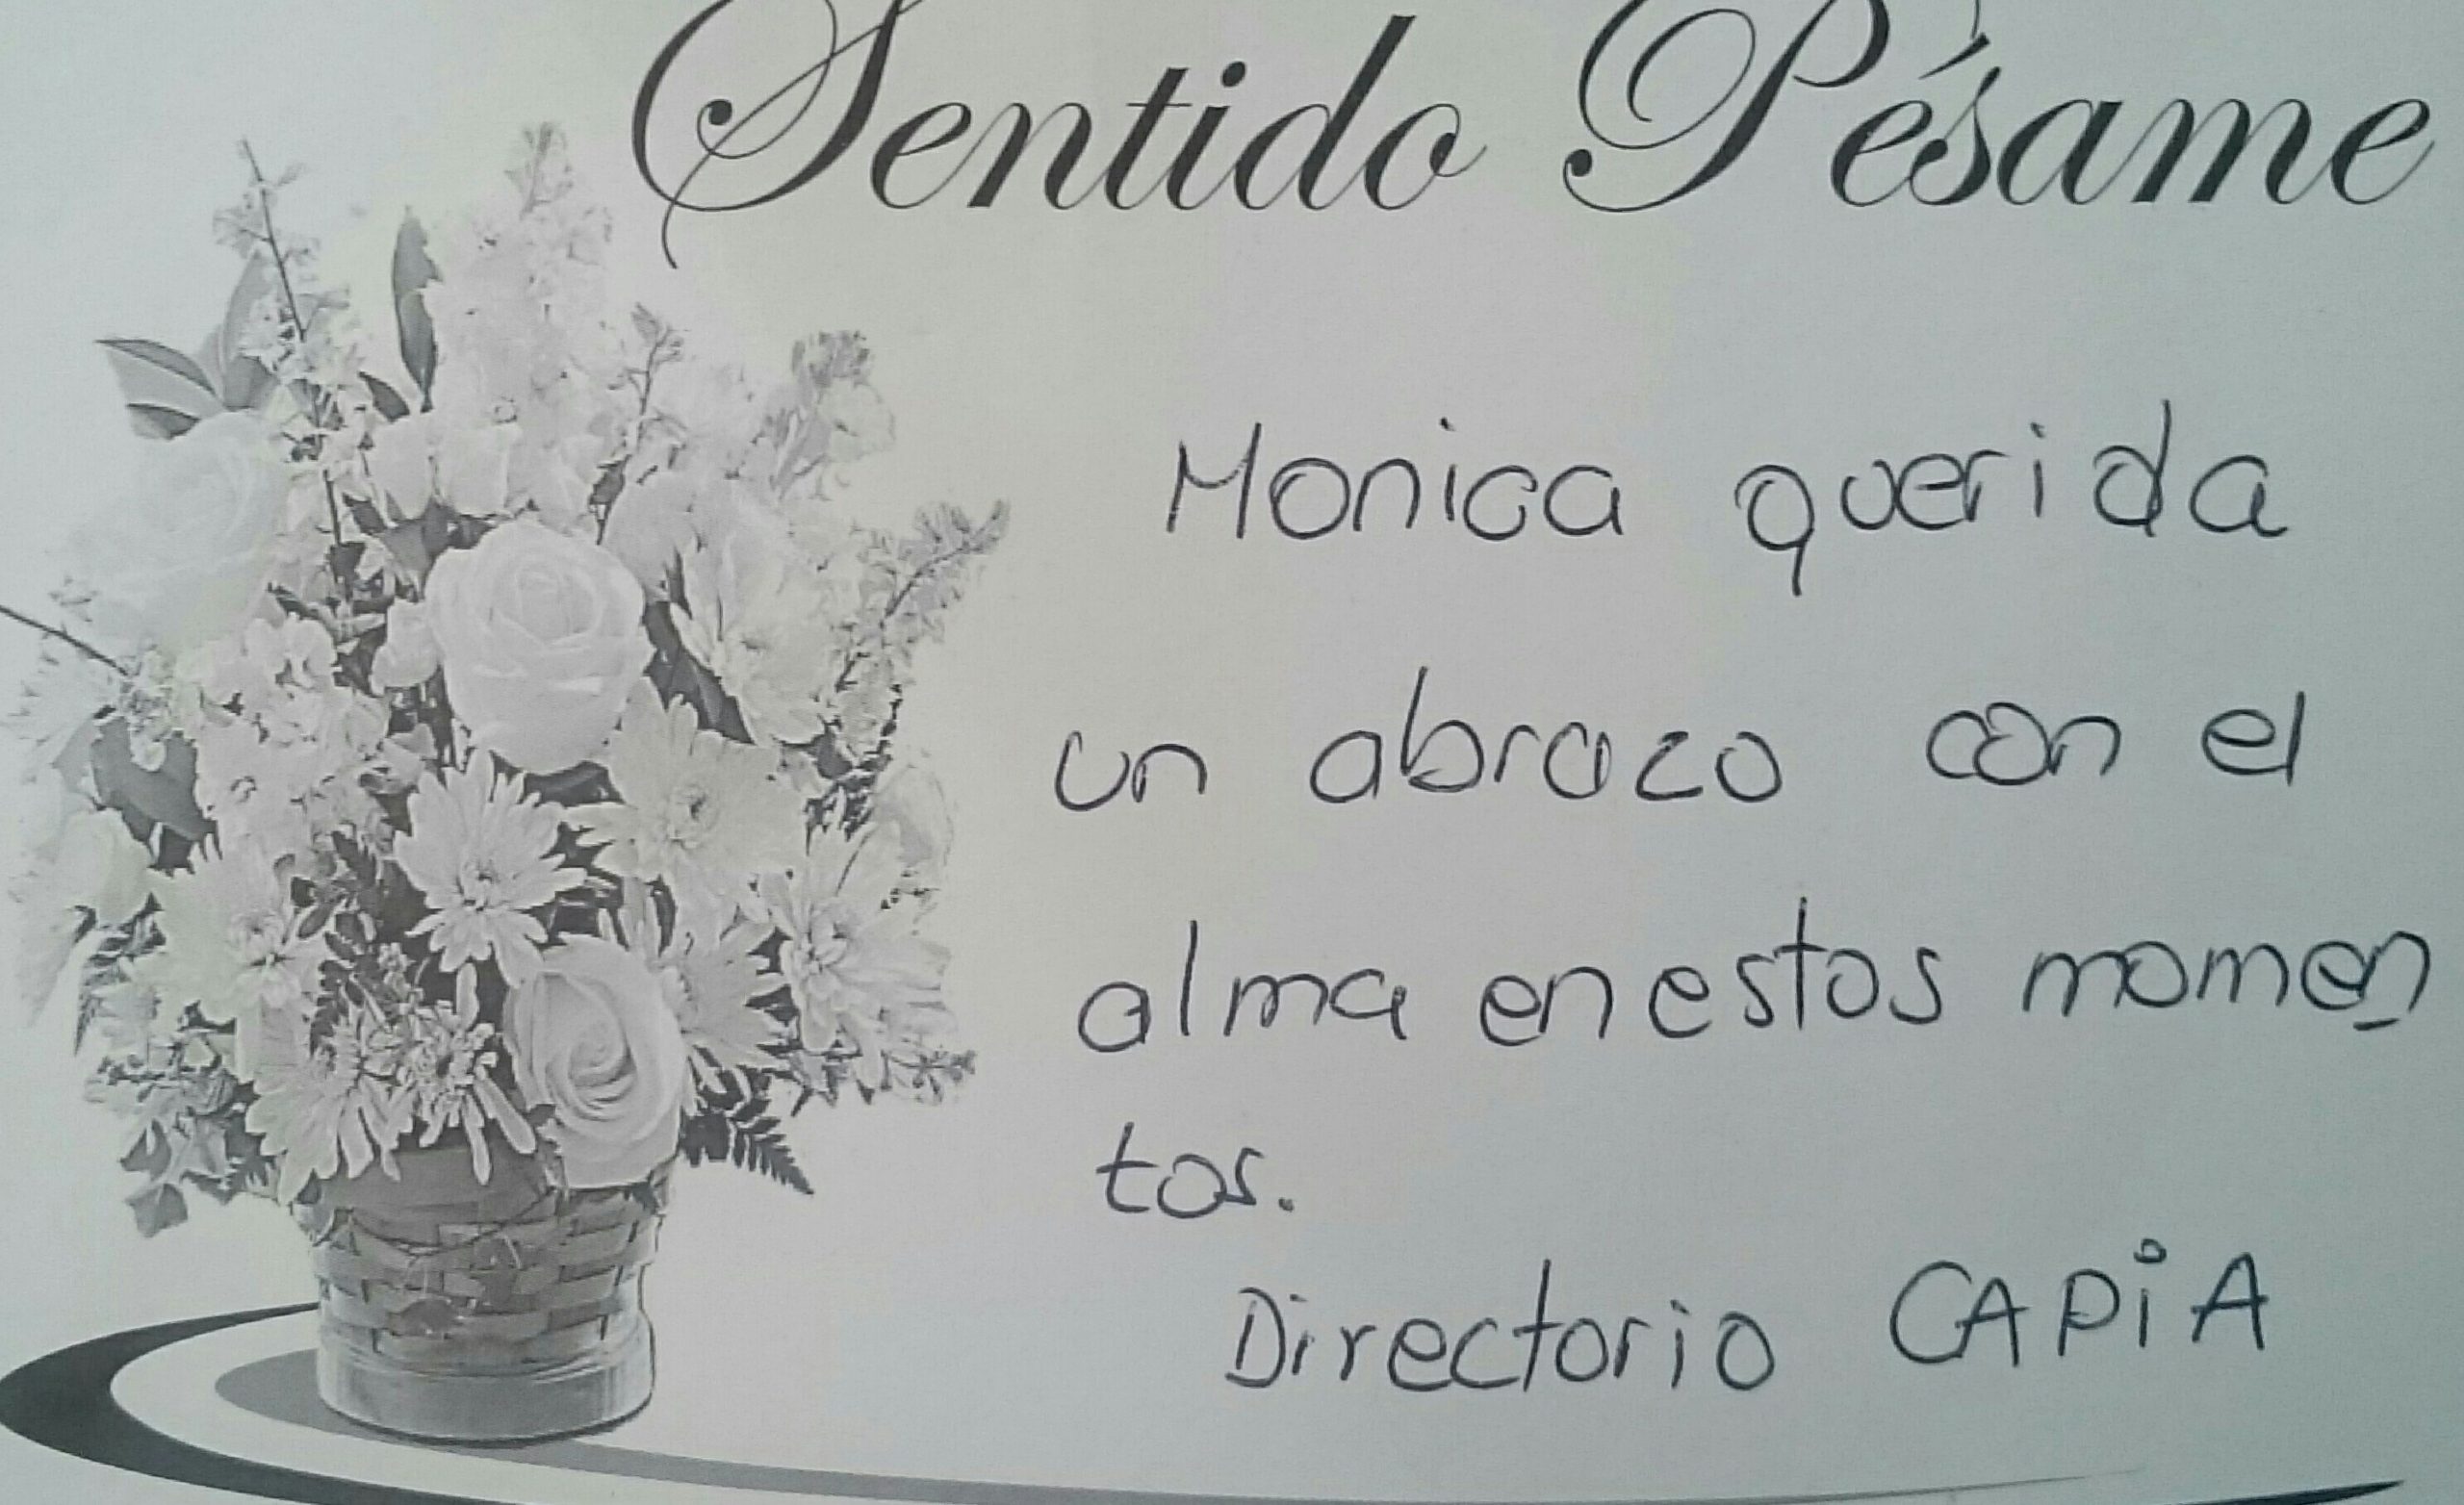 Sentido Pésame
Monica querida
un abrazo con el
alma en estos momen
tos.
Directorio CAPiA